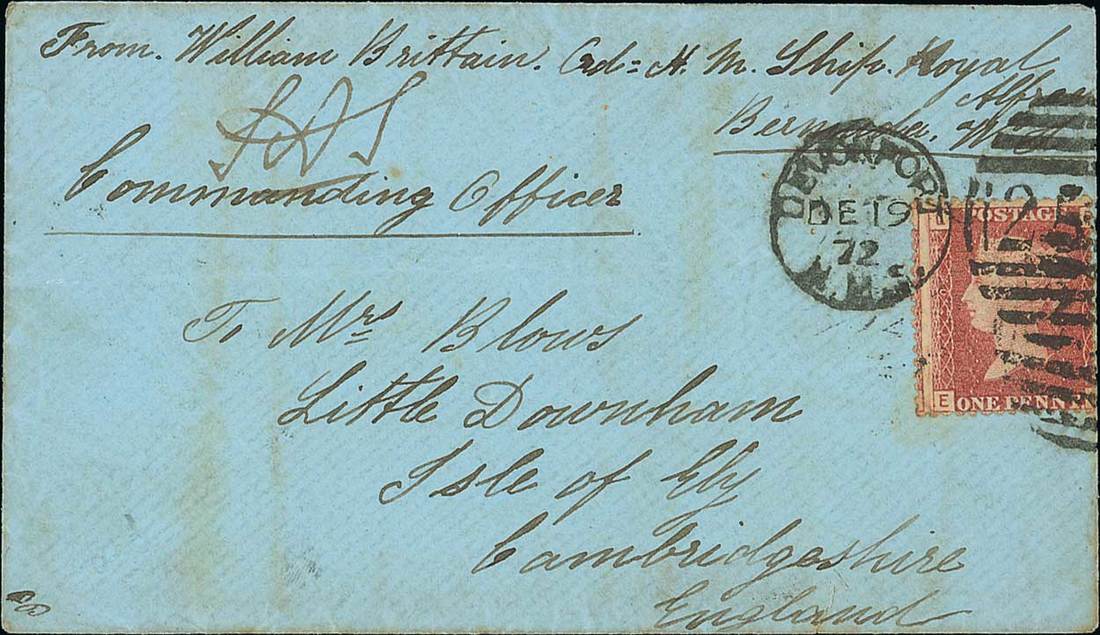 From. William Brittain. Ord= H. M. Ship. Royal
Alfred
Bermuda,
Commanding Officer
DEVONPORT
DE 19
72
POSTAGE
E
ONE PENNY
To Mrs Blows
Little Downham
Isle of Ely
Cambridgeshire
England